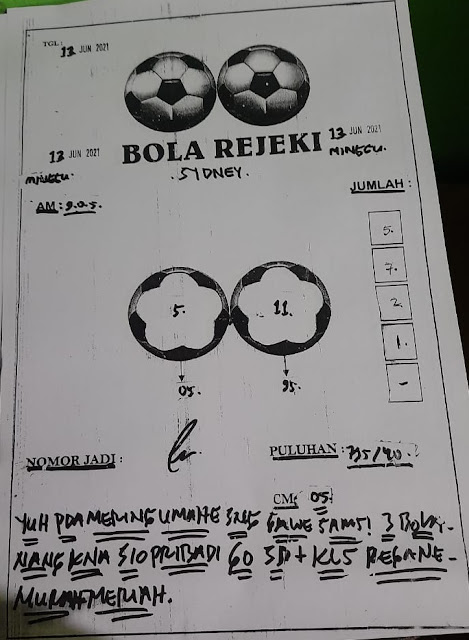 TGL : 13 JUN 2021
13 JUN 2021
BOLA REJEKI
13 JUN 2021
MINGGU.
MINGGU.
SYDNEY.
JUMLAH :
AM : 9.0.5.
5.
7.
2.
1.
-
5.
11.
05.
95.
NOMOR JADI :
PULUHAN :
CM: 05.
YUH PDA UMAHE SNG GAWE 3 BOLA.
NANG KNA SIO PRIBADI 60 REGANE-
MURAH MERIAH.